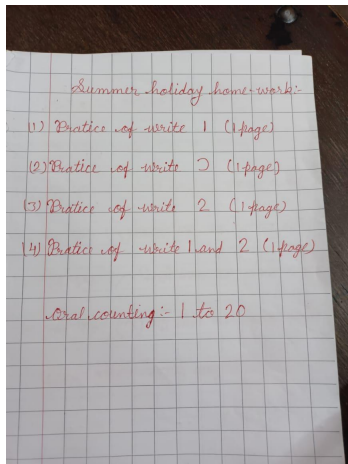 Summer holiday home-work:-
(1) Pratice of write 1 (1 page)
(2) Pratice of write Ɔ (1 page)
(3) Pratice of write 2 (1 page)
(4) Pratice of write 1 and 2 (1 page)
Oral counting:- 1 to 20